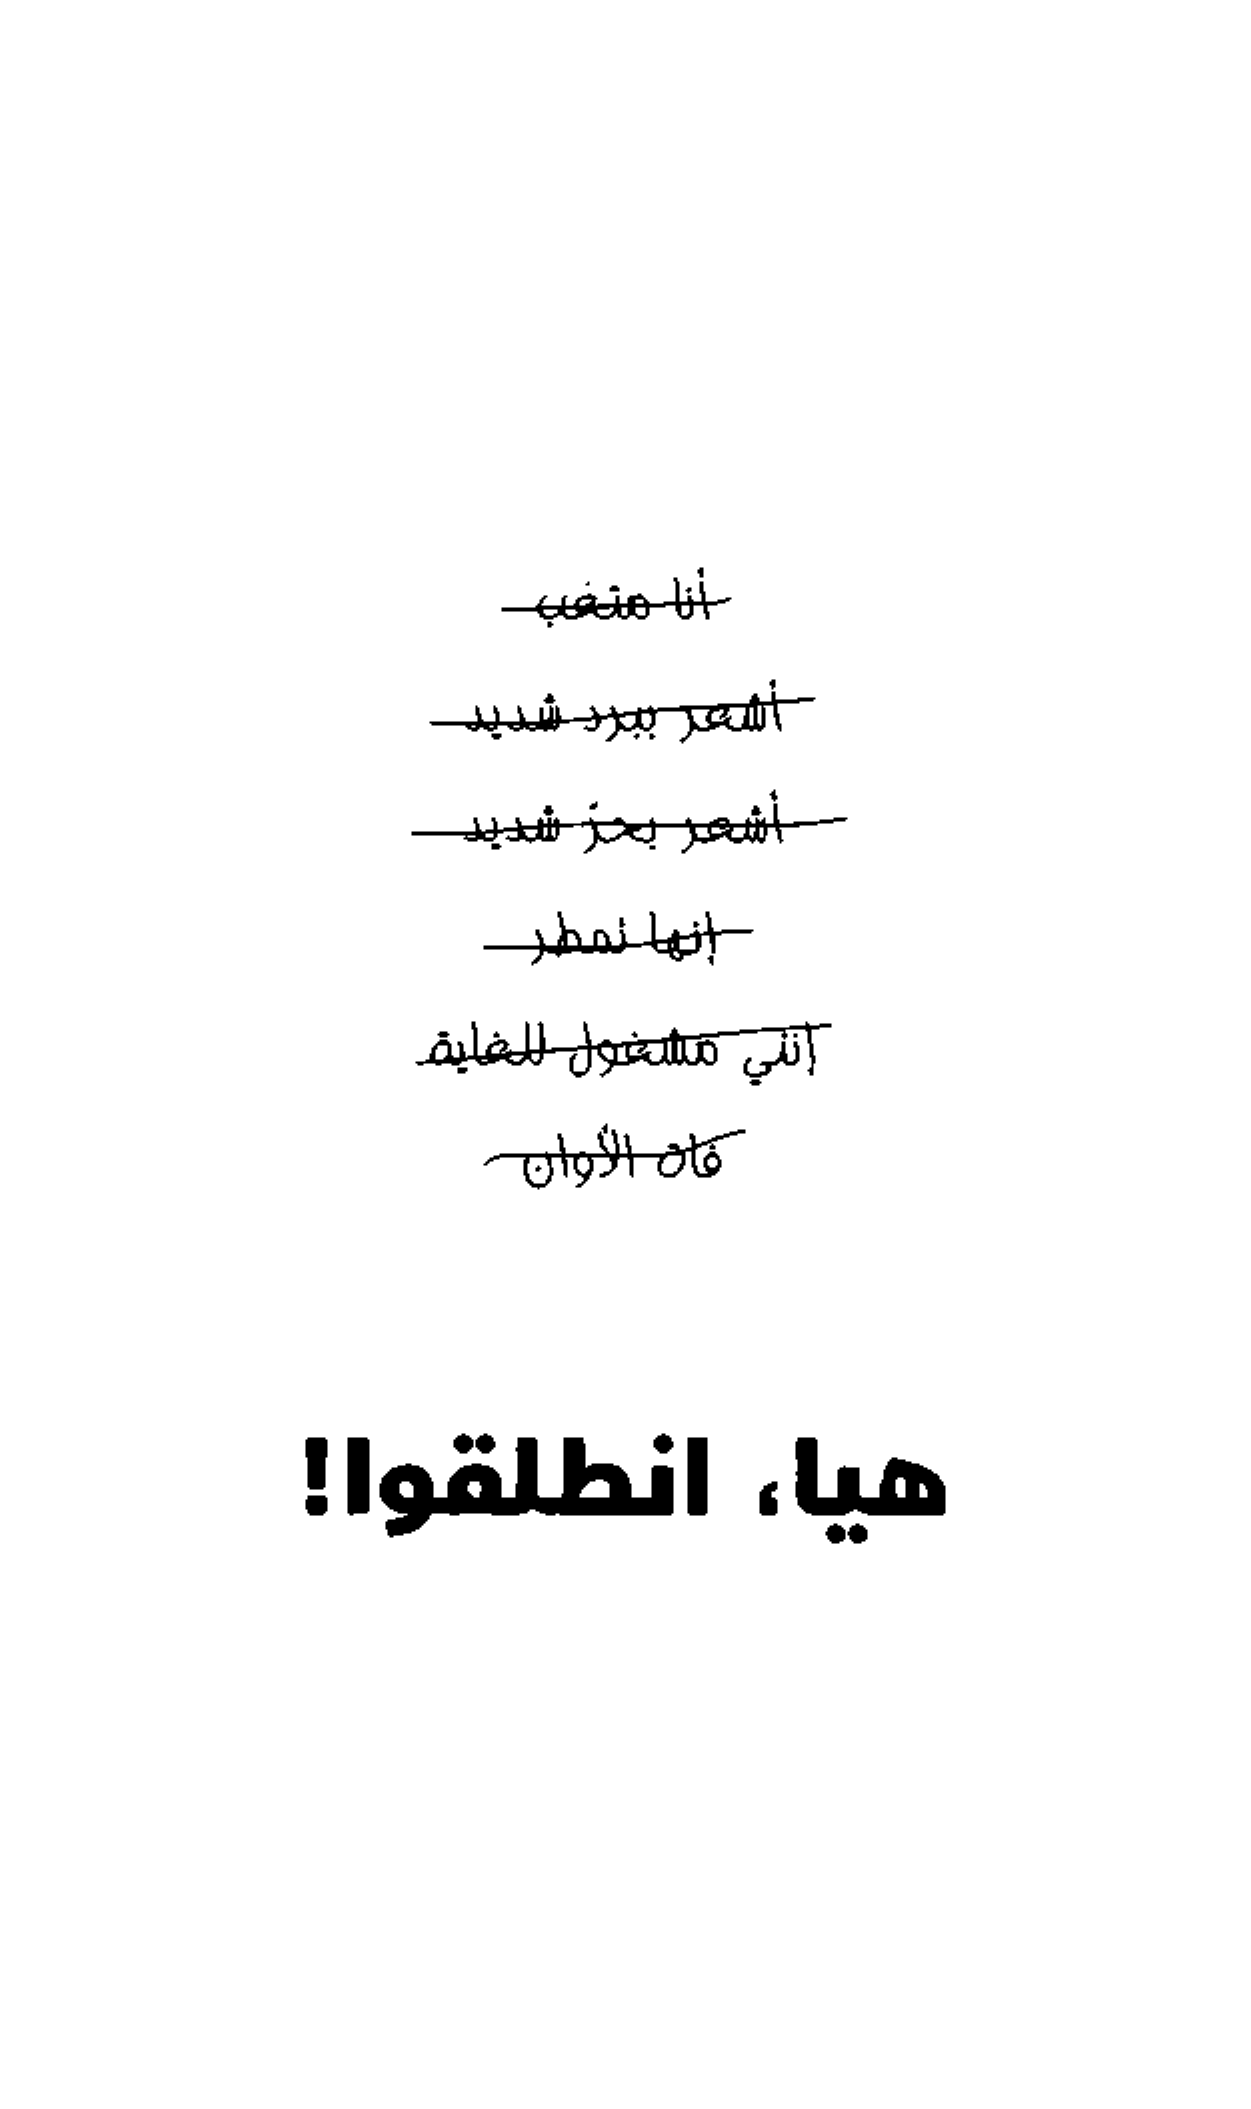 أنا متعب
أشعر ببرد شديد
أشعر بحر شديد
إنها تمطر
إنني مشغول للغاية
فات الأوان
هيا، انطلقوا!